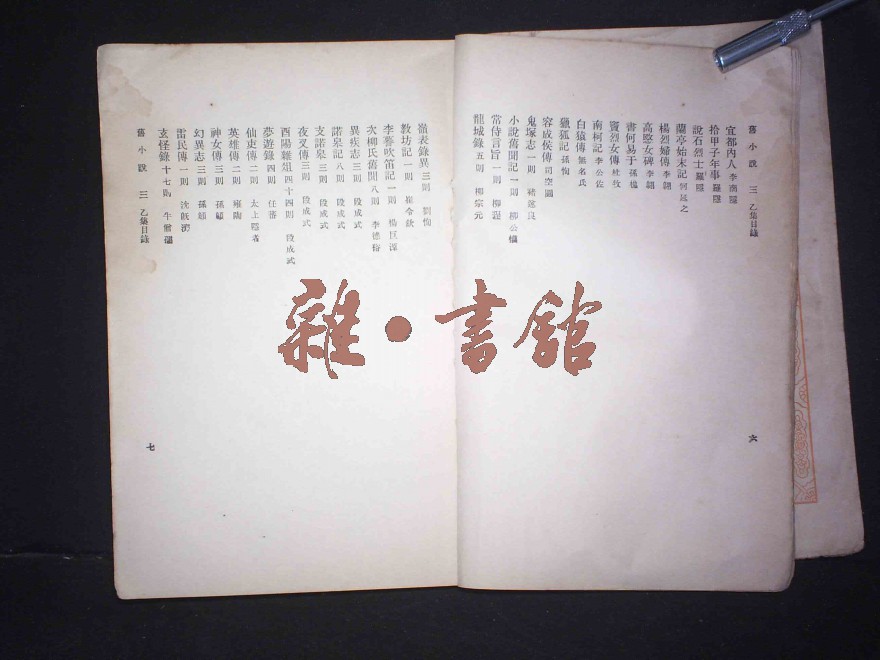 舊小說 三 乙集目錄
宜都內人 李商隱
拾甲子年事 羅隱
說石烈士 羅隱
蘭亭始末記 何延之
楊烈婦傳 李翺
高愍女碑 李翺
書何易于 孫樵
竇烈女傳 杜牧
南柯記 李公佐
白猿傳 無名氏
獵狐記 孫恂
容成侯傳 司空圖
鬼塚志 一則 褚遂良
小說舊聞記 一則 柳公權
常侍言旨 一則 柳珵
龍城錄 五則 柳宗元
六
嶺表錄異 三則 劉恂
教坊記 一則 崔令欽
李謩吹笛記 一則 楊巨源
次柳氏舊聞 八則 李德裕
異疾志 三則 段成式
諾皋記 八則 段成式
支諾皋 三則 段成式
夜叉傳 三則 段成式
酉陽雜俎 四十四則 段成式
夢遊錄 四則 任蕃
仙吏傳 二則 太上隱者
英雄傳 二則 雍陶
神女傳 三則 孫頠
幻異志 三則 孫頠
雷民傳 一則 沈既濟
玄怪錄 十七則 牛僧孺
舊小說 三 乙集目錄
七
雜・書館